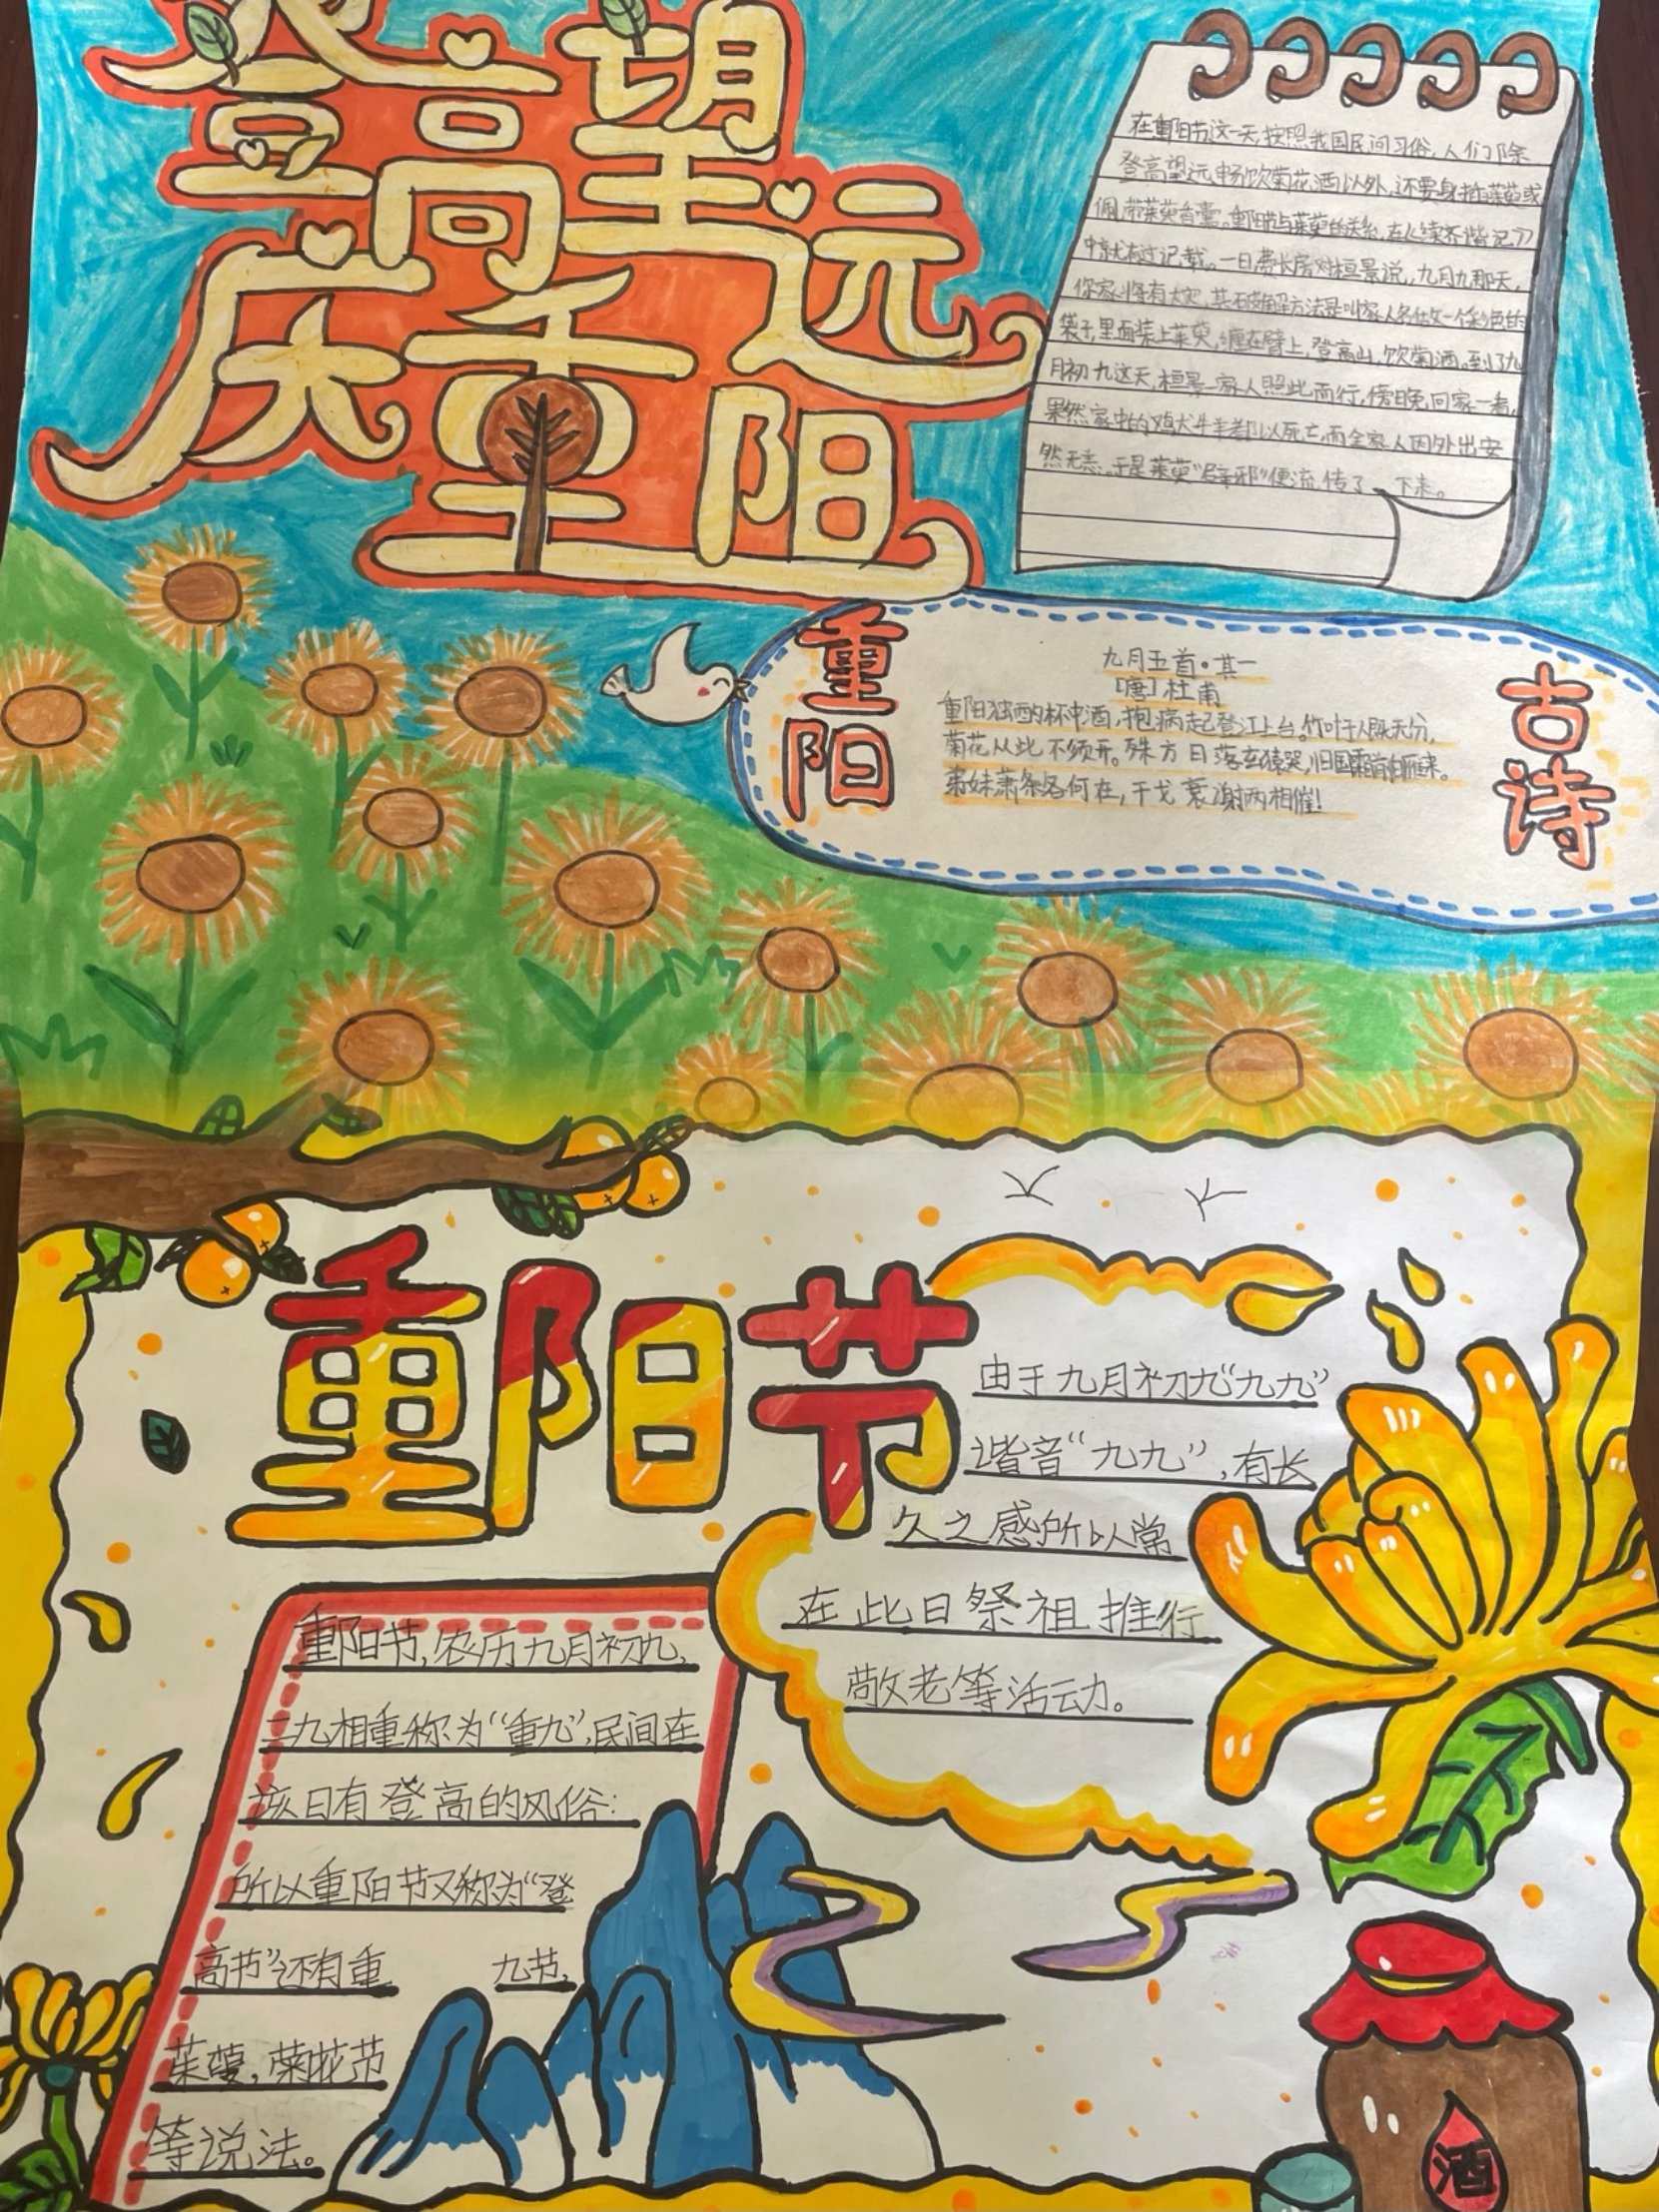 登高望远
庆重阳
在重阳节这一天,按照我国民间习俗,人们除
登高望远、畅饮菊花酒以外,还要身插茱萸或
佩带茱萸香囊。重阳节与茱萸的关系,在《续齐谐记》
中就有过记载。一日费长房对桓景说,九月九那天,
你家将有大灾,其破解方法是叫家人各做一个彩色的
袋子,里面装上茱萸,缠在臂上,登高山,饮菊酒。到了九
月初九这天,桓景一家人照此而行,傍晚回家一看,
果然家中的鸡犬牛羊都以死亡,而全家人因外出安
然无恙。于是茱萸“辟邪”便流传了一下来。
重阳
古诗
九月五首·其一
[唐]杜甫
重阳独酌杯中酒,抱病起登江上台。竹叶于人既无分,
菊花从此不须开。殊方日落玄猿哭,旧国霜前白雁来。
弟妹萧条各何在,干戈衰谢两相催!
重阳节
由于九月初九“九九”
谐音“九九”,有长
久之感所以常
在此日祭祖推行
敬老等活动。
重阳节,农历九月初九,
二九相重称为“重九”,民间在
该日有登高的风俗:
所以重阳节又称为“登
高节”还有重 九节,
茱萸,菊花节
等说法。
酒